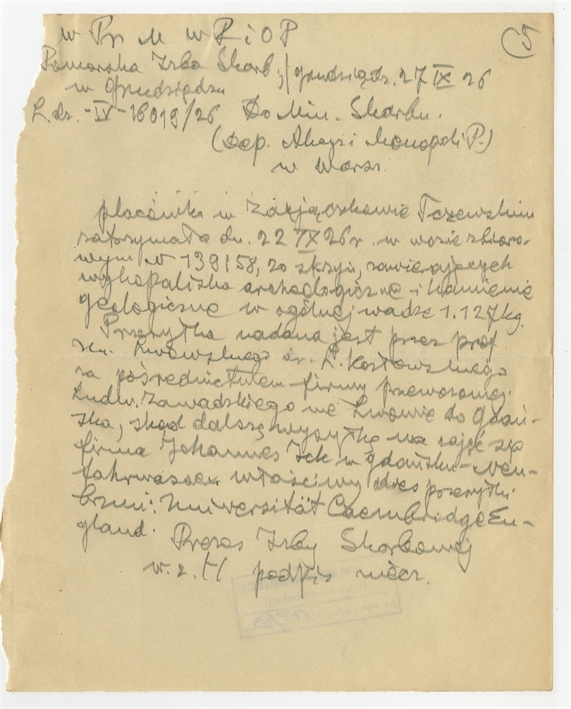 w Pr M W R i O P
5
Pomorska Izba Skarb. / Grudziądz. 27 IX 26
w Grudziądzu
L. dz. -IV-16019/26 Do Min. Skarbu.
(Dep. Akcyz i Monopoli P.)
w Warsz.
placówka w Zajączkowie Tczewskim
zatrzymała dn. 22 IX 26 r. w wozie zbioro-
wym N 139158, 20 skrzyń, zawierających
wykopaliska archeologiczne i kamienie
geologiczne w ogólnej wadze 1.127 kg.
Przesyłka nadana jest przez prof
un. lwowskiego dr. L. Kozłowskiego
za pośrednictwem firmy przewozowej
Ludw. Zawadzkiego we Lwowie do Gdań-
ska, skąd dalszą wysyłką ma zająć się
firma Johannes Ick w Gdańsku-Neu-
fahrwasser właściwy adres przesyłki
brzmi: Universität Caembridge En-
gland.
Prezes Izby Skarbowej
w. z. (-) podpis niecz.